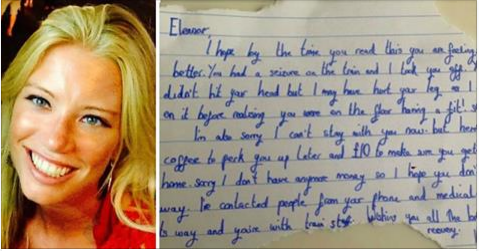 Eleanor,
I hope by the time you read this you are feeling
better. You had a seizure on the train and I took you off
didn't hit your head but I may have hurt your leg as I
on it before realising you were on the floor having a fit!
I'm also sorry I can't stay with you now. but
coffee to perk you up later and £10 to make sure you get
home. Sorry I don't have anymore money so I hope you don't
way. I've contacted people from your phone and medical
is way and you're with train staff. Wishing you all the
recovery.